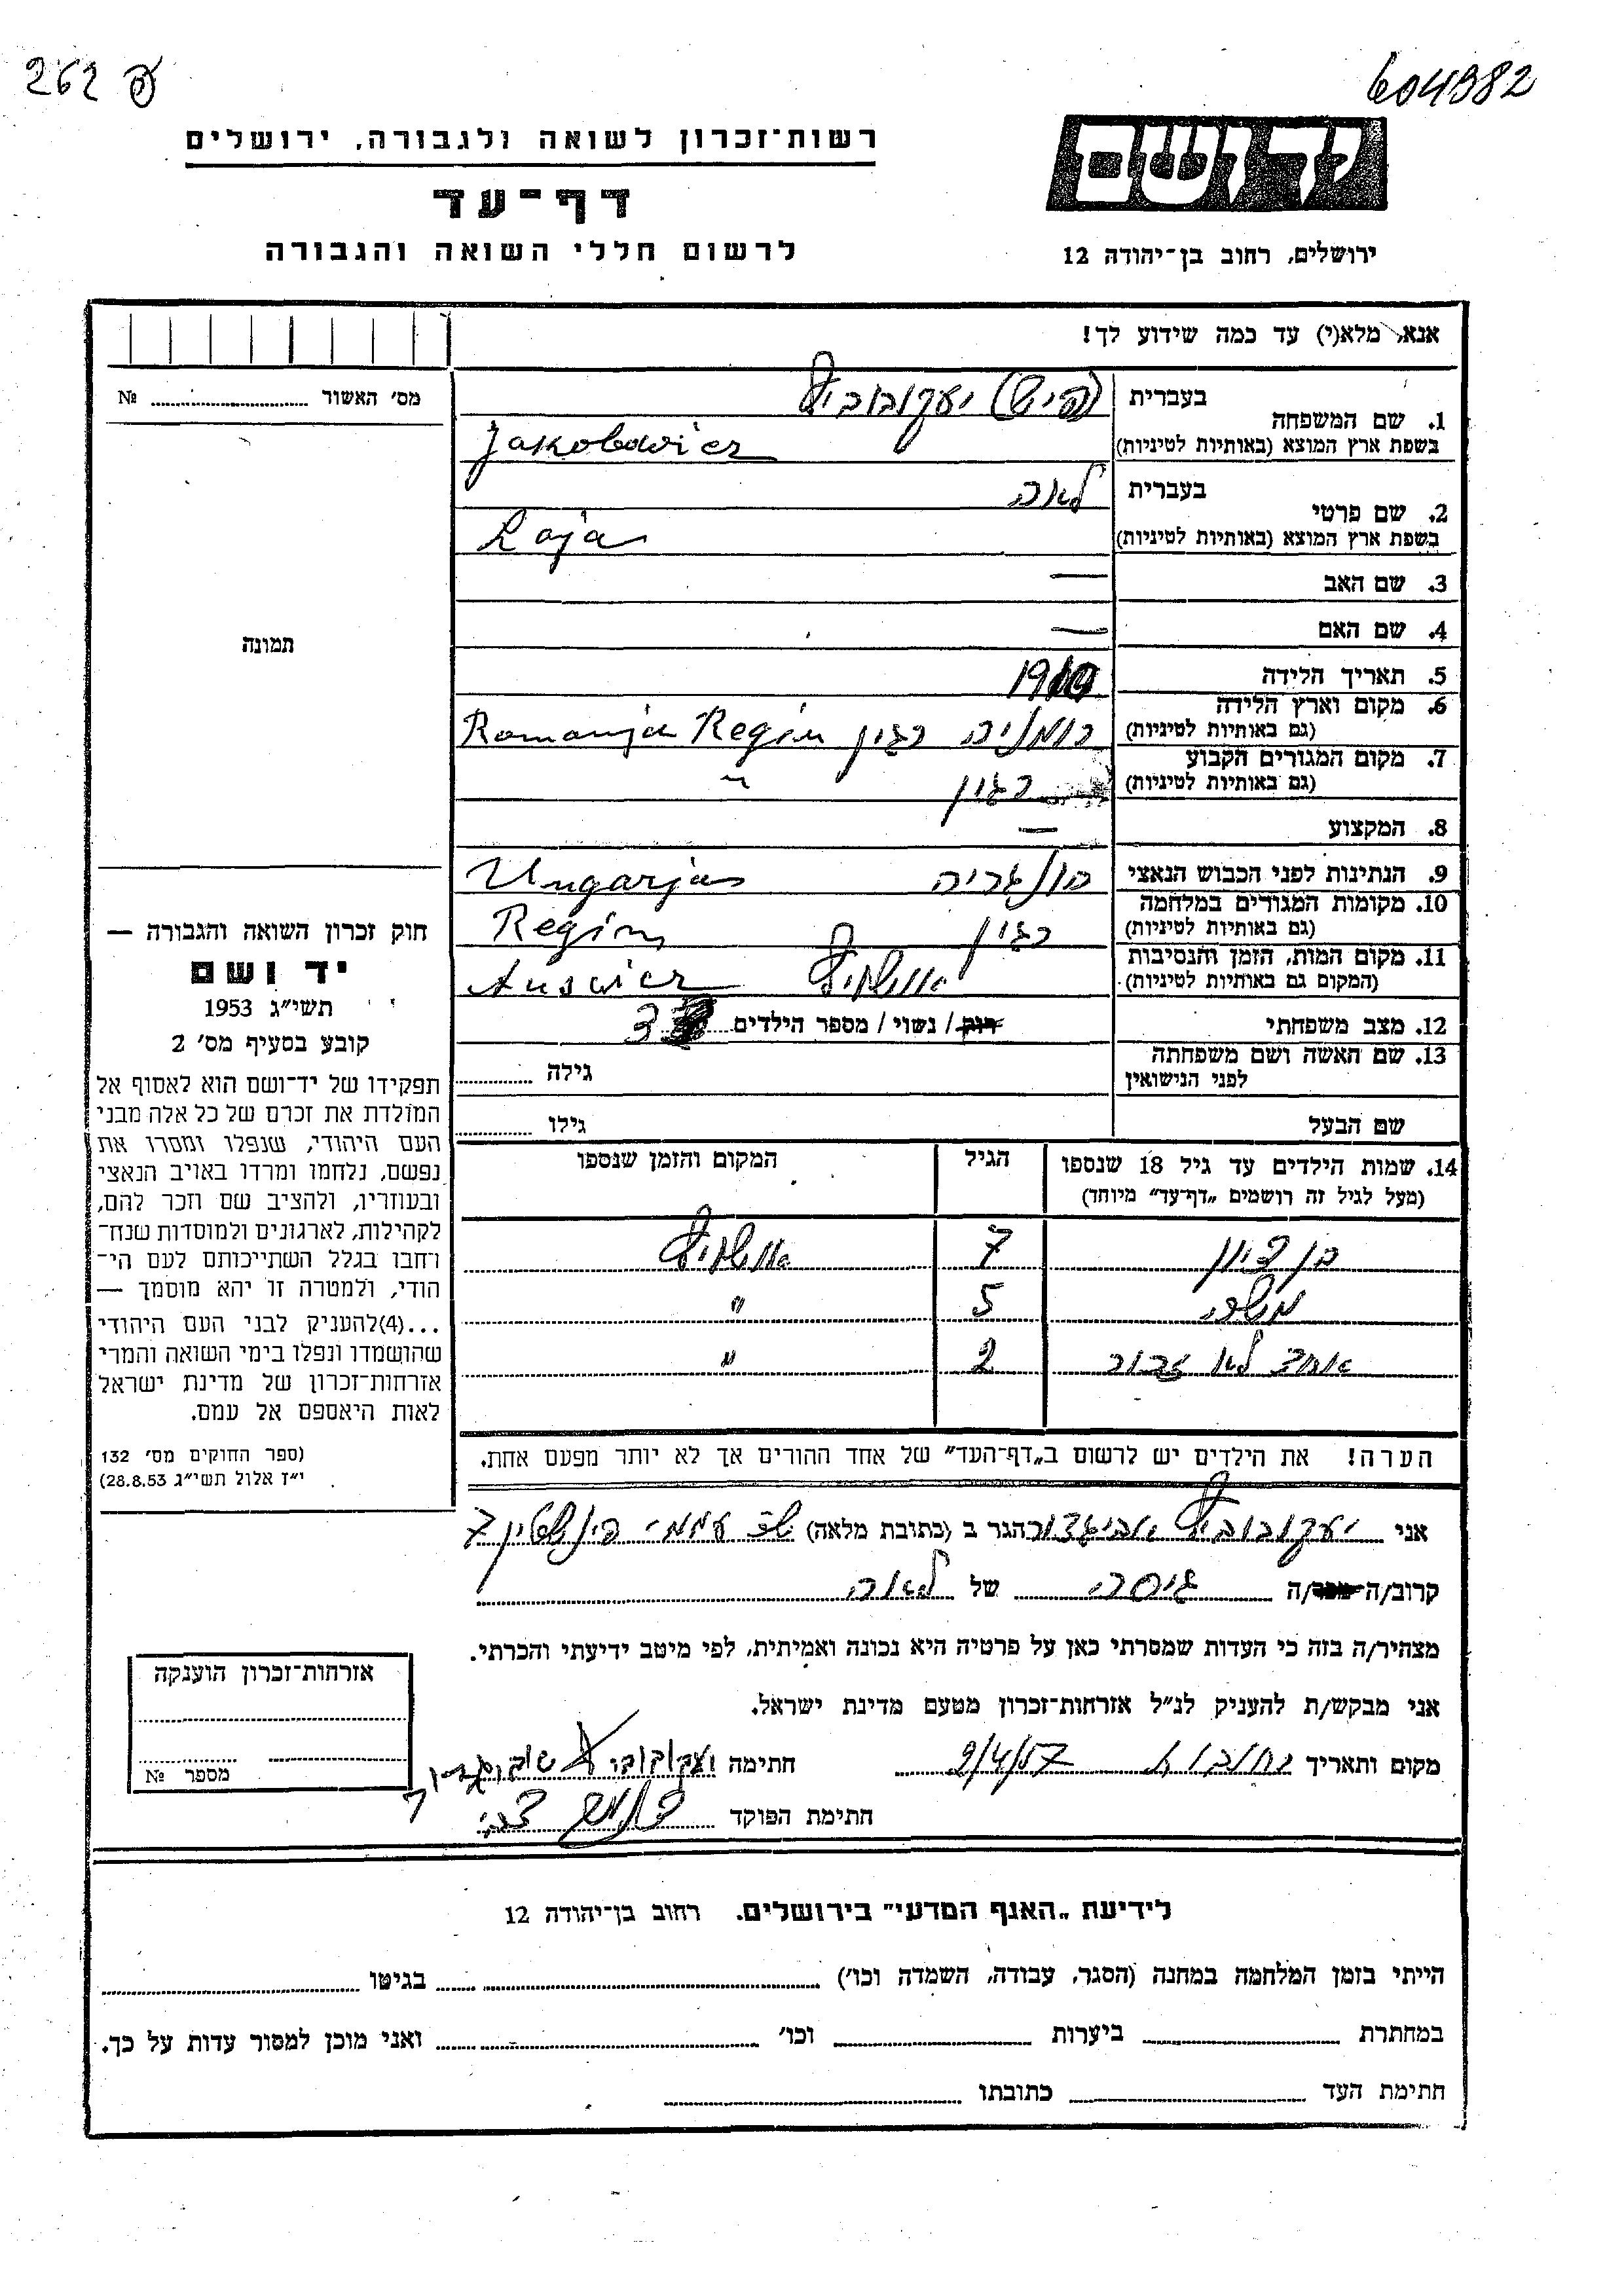 262 ק
604982
יד ושם
ירושלים, רחוב בן־יהודה 12
רשות־זכרון לשואה ולגבורה, ירושלים
דף־עד
לרשום חללי השואה והגבורה
אנא, מלא(י) עד כמה שידוע לך!
מס' האשור № 
תמונה
חוק זכרון השואה והגבורה —
יד ושם
תשי״ג 1953
קובע בסעיף מס' 2
תפקידו של יד־ושם הוא לאסוף אל
המולדת את זכרם של כל אלה מבני
העם היהודי, שנפלו ומסרו את
נפשם, נלחמו ומרדו באויב הנאצי
ובעוזריו, ולהציב שם וזכר להם,
לקהילות, לארגונים ולמוסדות שנח־
רחבו בגלל השתייכותם לעם הי־
הודי, ולמטרה זו יהא מוסמך —
...(4)להעניק לבני העם היהודי
שהושמדו ונפלו בימי השואה והמרי
אזרחות־זכרון של מדינת ישראל
לאות היאספם אל עמם.
(ספר החוקים מס' 132
י״ז אלול תשי״ג 28.8.53)
1. שם המשפחה
בעברית (פיש) יעקובוביץ
בשפת ארץ המוצא (באותיות לטיניות) Jakobowicz
2. שם פרטי
בעברית לאה
בשפת ארץ המוצא (באותיות לטיניות) Laja
3. שם האב —
4. שם האם —
5. תאריך הלידה 1910
6. מקום וארץ הלידה
(גם באותיות לטיניות) רומניה רגין Romanja Regin
7. מקום המגורים הקבוע
(גם באותיות לטיניות) רגין "
8. המקצוע —
9. הנתינות לפני הכבוש הנאצי הונגריה Ungarja
10. מקומות המגורים במלחמה
(גם באותיות לטיניות) רגין Regin
11. מקום המות, הזמן והנסיבות
(המקום גם באותיות לטיניות) אושוויץ Auswicz
12. מצב משפחתי רוק / נשוי / מספר הילדים 3
13. שם האשה ושם משפחתה
לפני הנישואין גילה
שם הבעל גילו
14. שמות הילדים עד גיל 18 שנספו הגיל המקום והזמן שנספו
(מעל לגיל זה רושמים „דף־עד״ מיוחד)
בן ציון 7 אושוויץ
משה 5 "
אחד לא זכור 2 "
הערה! את הילדים יש לרשום ב„דף־העד״ של אחד ההורים אך לא יותר מפעם אחת.
אני יעקובוביץ אביגדור הגר ב (כתובת מלאה) שכ עממי 7
קרוב/ה מכר/ה גיסה של לאה
מצהיר/ה בזה כי העדות שמסרתי כאן על פרטיה היא נכונה ואמיתית, לפי מיטב ידיעתי והכרתי.
אני מבקש/ת להעניק לנ״ל אזרחות־זכרון מטעם מדינת ישראל.
מקום ותאריך רחובות 9/4/57 חתימה יעקובוביץ אביגדור
חתימת הפוקד
אזרחות־זכרון הוענקה
מספר №
לידיעת „האגף המדעי״ בירושלים. רחוב בן־יהודה 12
הייתי בזמן המלחמה במחנה (הסגר, עבודה, השמדה וכו') בגיטו
במחתרת ביערות וכו' ואני מוכן למסור עדות על כך.
חתימת העד כתובתו